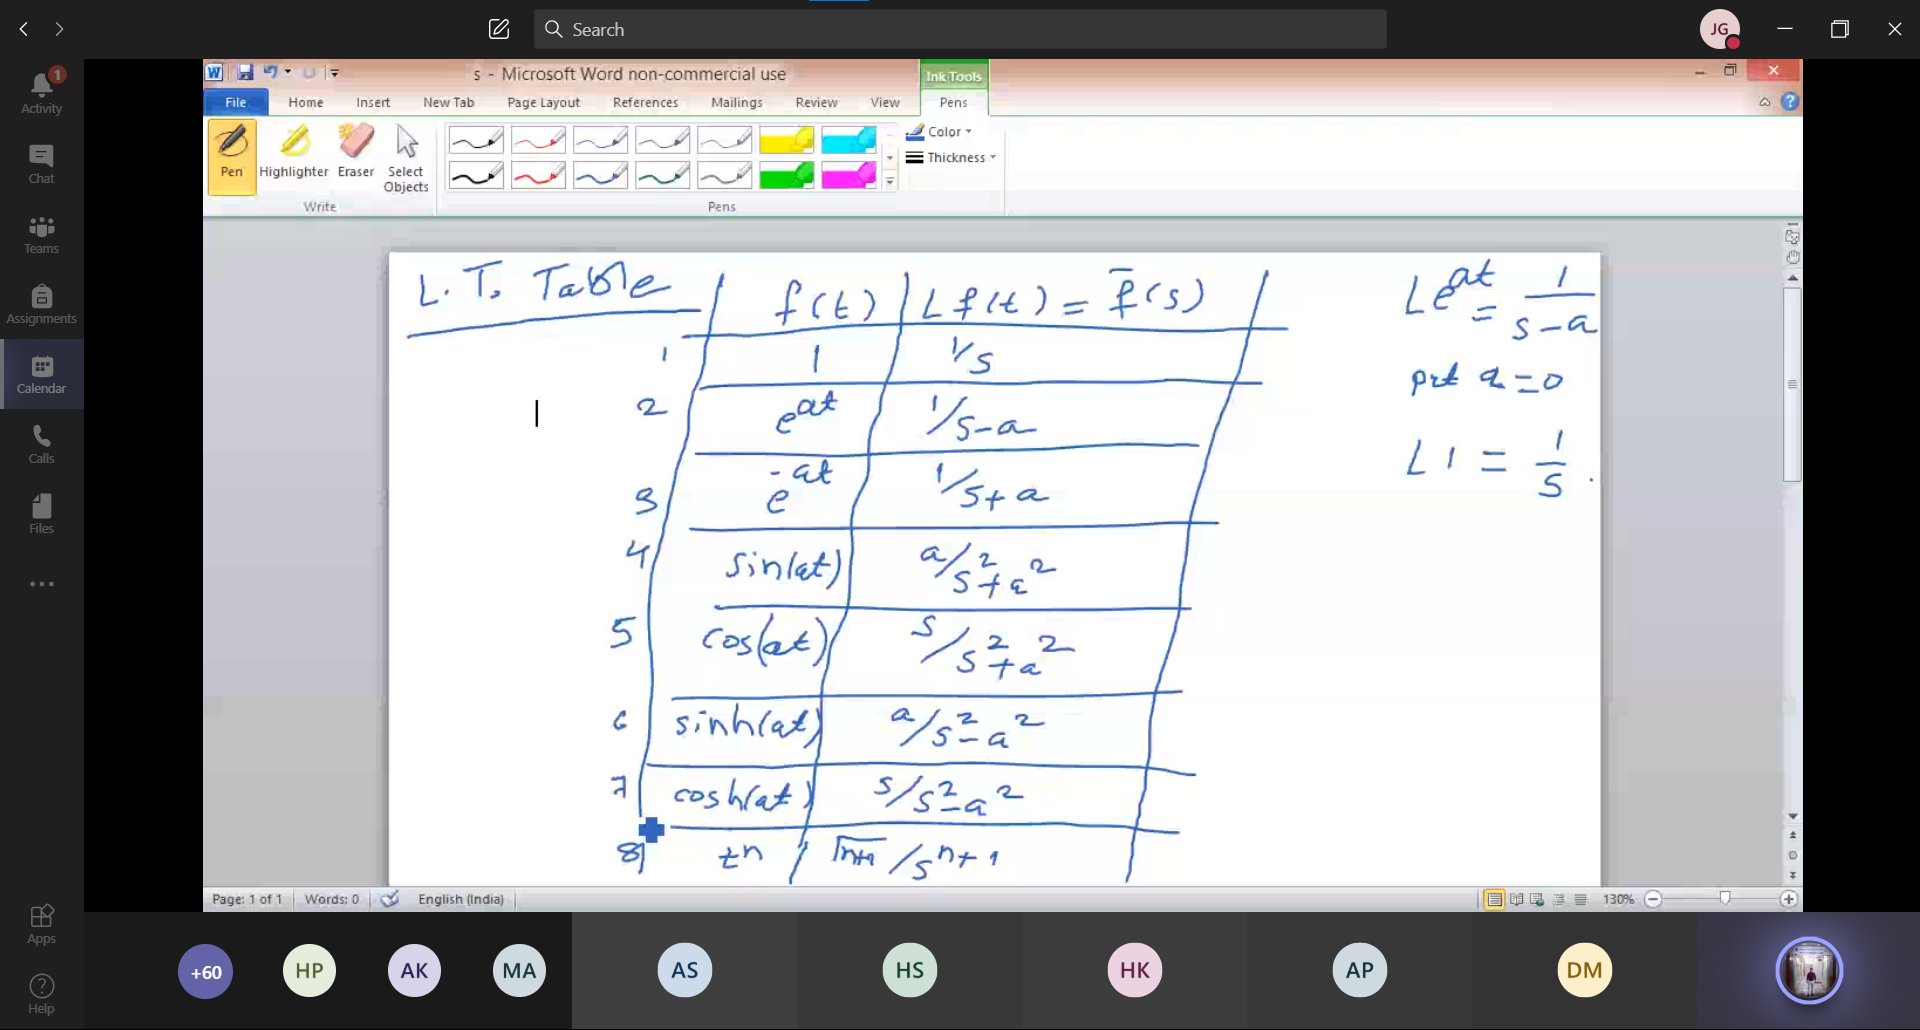 Search
JG
Activity
1
Chat
Teams
Assignments
Calendar
Calls
Files
Apps
Help
s - Microsoft Word non-commercial use
Ink Tools
File Home Insert New Tab Page Layout References Mailings Review View Pens
Pen Highlighter Eraser Select Objects
Color
Thickness
Write
Pens
L.T. Table
f(t) Lf(t) = f̄(s)
1 1 1/s
2 e^at 1/s-a
3 e^-at 1/s+a
4 sin(at) a/s²+a²
5 cos(at) s/s²+a²
6 sinh(at) a/s²-a²
7 cosh(at) s/s²-a²
8 t^n Γn+1/s^n+1
Le^at = 1/s-a
put a=0
L1 = 1/s.
Page: 1 of 1 Words: 0 English (India) 130%
+60 HP AK MA AS HS HK AP DM